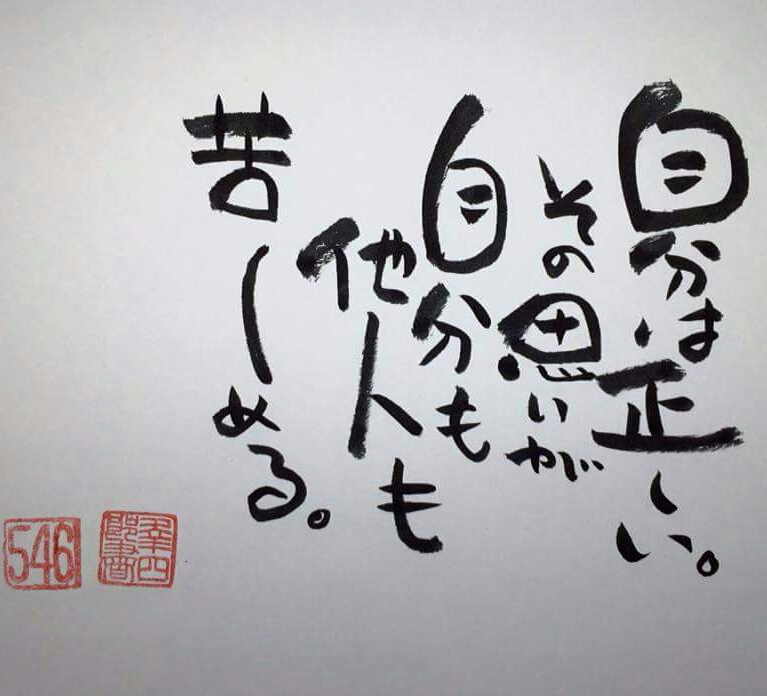 自分は正しい。
その思いが
自分も
他人も
苦しめる。
546